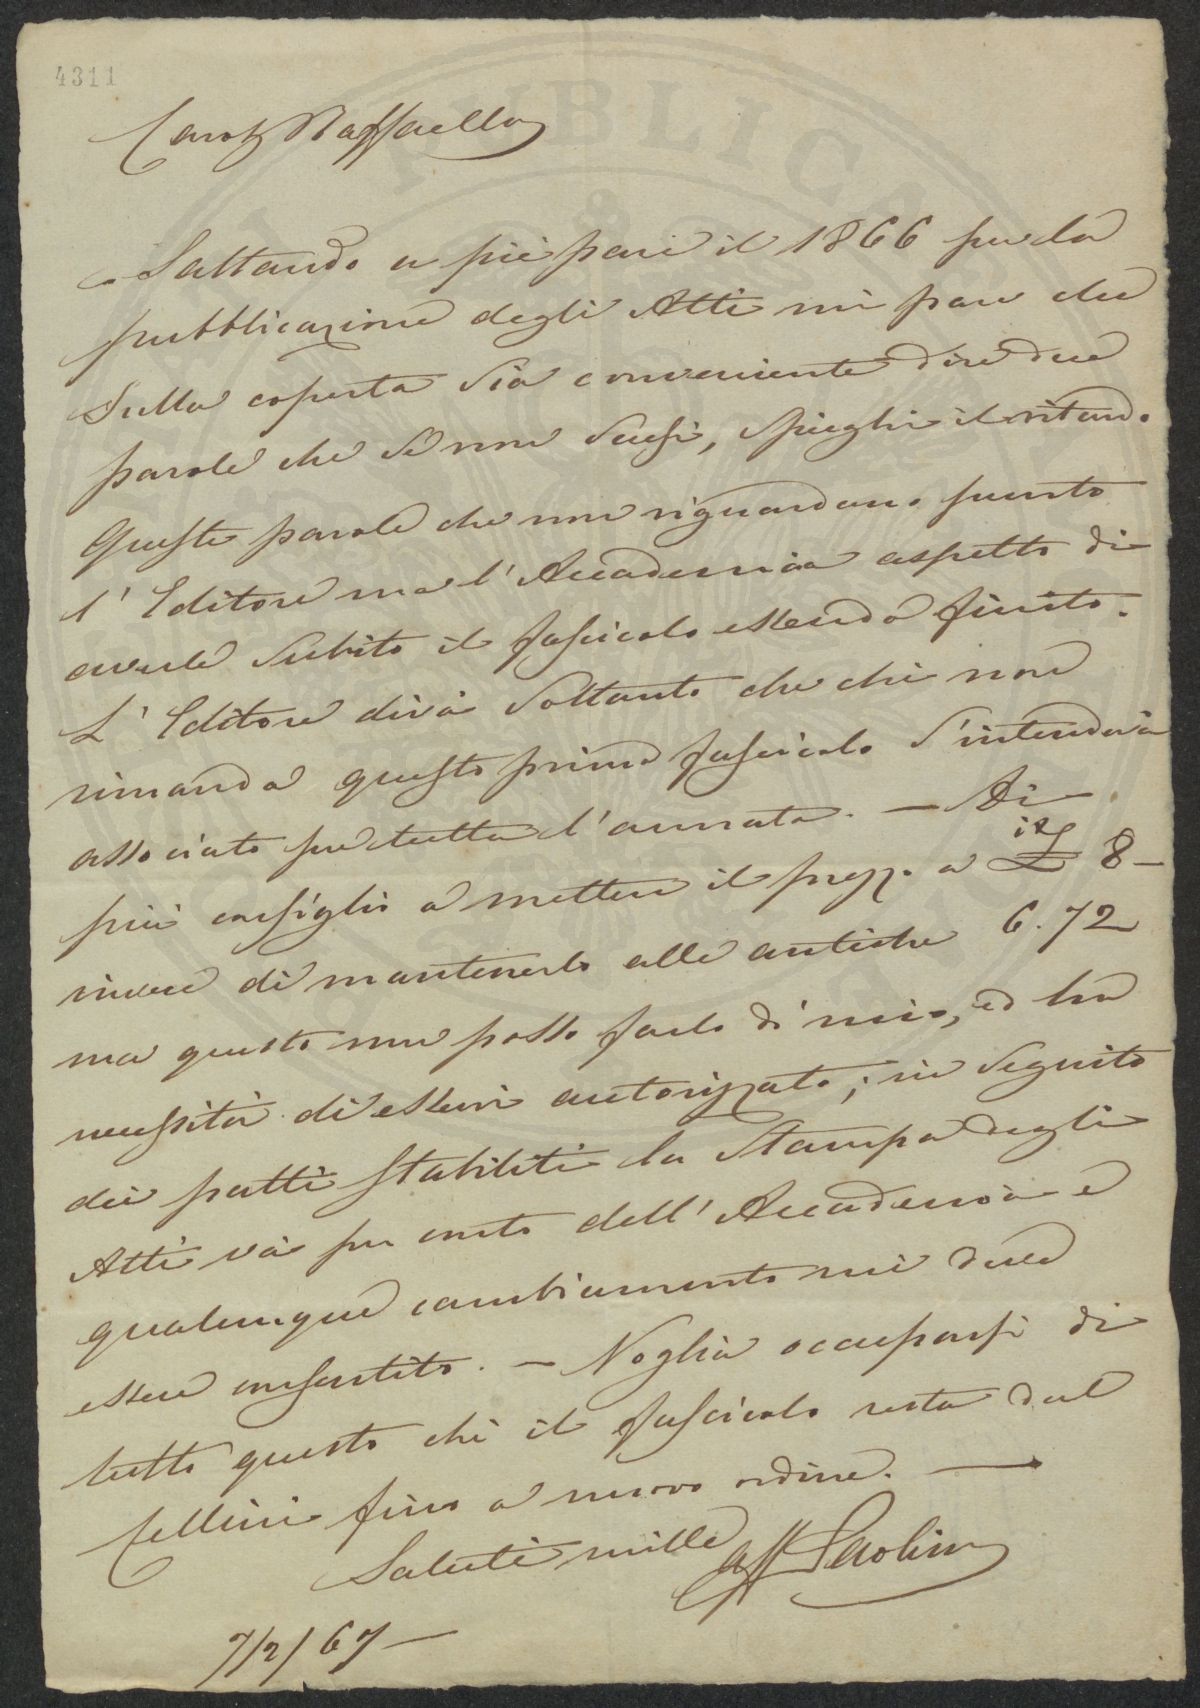 4311
Caro Raffaello
Saltando a piè pari il 1866 per la
pubblicazione degli Atti mi pare che
Sulla coperta Sia conveniente dire due
parole che Se non Scusi, Spieghi il ritardo.
Queste parole che non riguardano punto
l'Editore ma l'Accademia aspetto di
averle Subito il fascicolo essendo finito.
L'Editore dirà Soltanto che chi non
rimanda questo primo fascicolo S'intenderà
associato per tutta l'annata. — Di
più consiglio a mettere il prezzo a it £ 8 —
invece di mantenerlo alle antiche 6.72
ma questo non posso farlo di mio, ed ho
necessità di essere autorizzato; in Seguito
dei patti Stabiliti la Stampa degli
Atti và per conto dell'Accademia e
qualunque cambiamento mi deve
essere consentito. — Voglia occuparsi di
tutto questo chè il fascicolo resta dal
Cellini fino a nuovo ordine. —
Saluti mille
Aff Paolini
7/2/67 —
PUBLICA